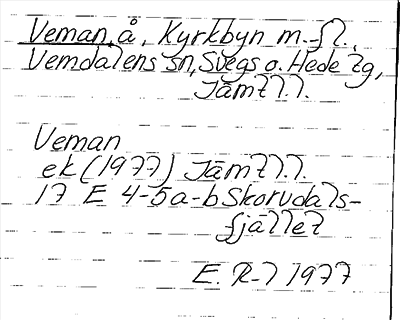 Veman, å, Kyrkbyn m.fl.,
Vemdalens sn, Svegs o. Hede tg,
Jämtl.l.
Veman
ek (1977) Jämtl.l.
17 E 4-5a-b Skorvdals-
fjället
E. R-l 1977